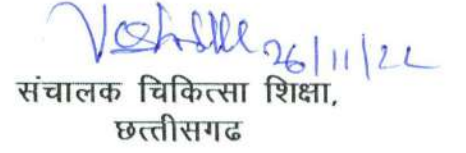 26/11/22
संचालक चिकित्सा शिक्षा,
छत्तीसगढ